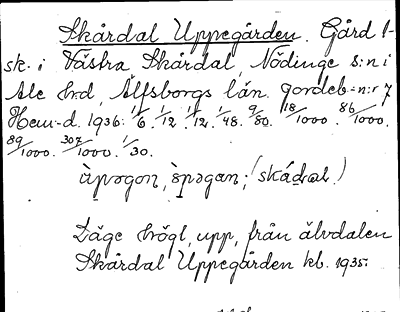 Skårdal Uppegården. Gård l-
sk. i Västra Skårdal, Nödinge s:n i
Ale hrd, Älfsborgs län. Jordeb:n:r 7
Hem-d. 1936: 1/6. 1/12. 1/12. 1/48. 9/80. 18/1000. 86/1000.
89/1000. 307/1000. 1/30.
(skådal.)
Läge högt, upp, från älvdalen
Skårdal Uppegården kb. 1935.